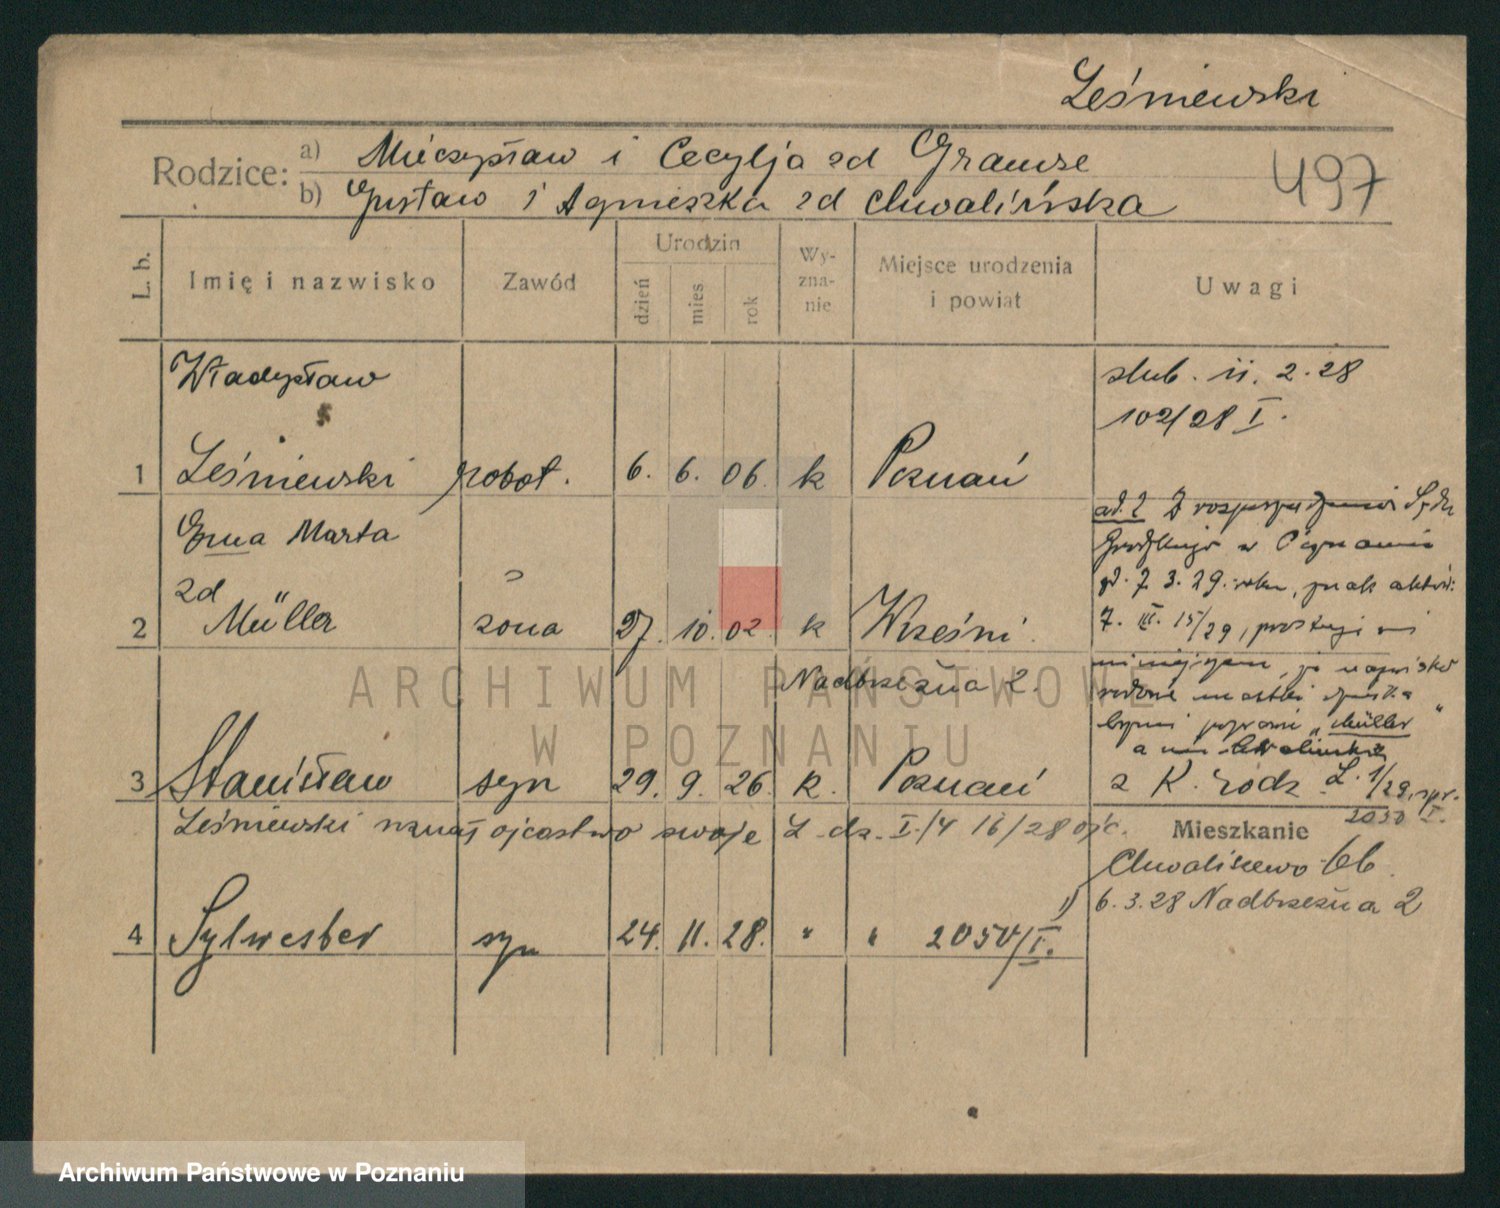 Leśniewski
Rodzice: a) Mieczysław i Cecylja zd Grausse
497
b) Gustaw i Agnieszka zd Chwalińska
L. b.
Imię i nazwisko
Zawód
Urodzin
dzień
mies
rok
Wy-
zna-
nie
Miejsce urodzenia
i powiat
Uwagi
Władysław
ślub. 11. 2. 28
102/28 I.
1 Leśniewski robot. 6. 6. 06. k Poznań
Erna Marta
zd
2 Müller żona 27. 10. 02. k Wrześni.
ad. 2 Z rozporządzenia Sądu
Grodzkiego w Poznaniu
z d. 7. 3. 29. roku, znak aktów:
7. III. 15/29, prostuje się
niniejszem, że nazwisko
rodowe matki dziecka
brzmi poprawnie „Müller"
a nie Chwalińska
Nadbrzeżna 2.
3 Stanisław syn 29. 9. 26. k. Poznań
z K. rodz. L. 1/29, spr.
2050 I.
Leśniewski uznał ojcostwo swoje L. dz. I./4 16/28 ojc.
Mieszkanie
Chwaliszewo 66.
1) 6. 3. 28 Nadbrzeżna 2
4 Sylwester syn 24. 11. 28. " " 2050/I.
ARCHIWUM PAŃSTWOWE
W POZNANIU
Archiwum Państwowe w Poznaniu